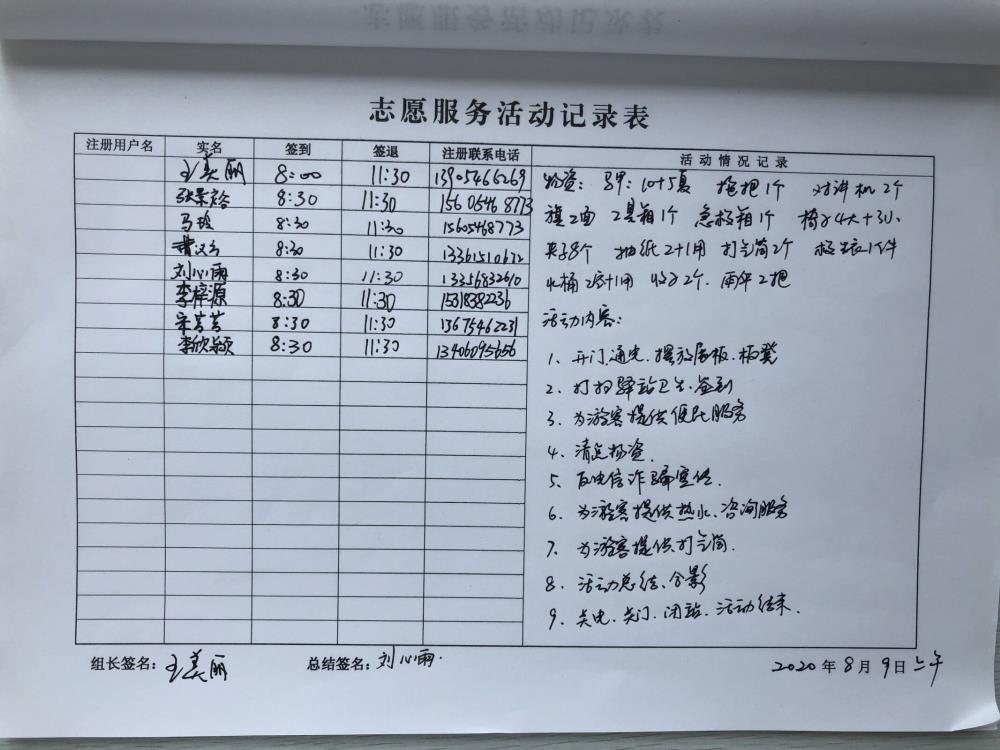 志愿服务活动记录表
注册用户名 实名 签到 签退 注册联系电话 活动情况记录
王美丽 8:00 11:30 13905466269
张景裕 8:30 11:30 15605468773
马 8:30 11:30 15605468773
8:30 11:30 13361510672
刘心雨 8:30 11:30 13356832610
李梓源 8:30 11:30 15318382236
宋芳芳 8:30 11:30 13675462231
李欣颖 8:30 11:30 13406095656
物资: 马甲:10+5夏 拖把1个 对讲机2个
旗2面 工具箱1个 急救箱1个 椅子4大+3小
夹子8个 抽纸2+1用 打气筒2个 救生衣1件
水桶 2个 雨伞2把
活动内容:
1、开门、通风、摆放展板、板凳
2、打扫驿站卫生、签到
3、为游客提供便民服务
4、清点物资.
5、反电信诈骗宣传.
6、为游客提供热水、咨询服务
7、为游客提供打气筒.
8、活动总结、合影
9、关电、关门、闭站、活动结束.
组长签名: 王美丽 总结签名: 刘心雨. 2020年8月9日上午